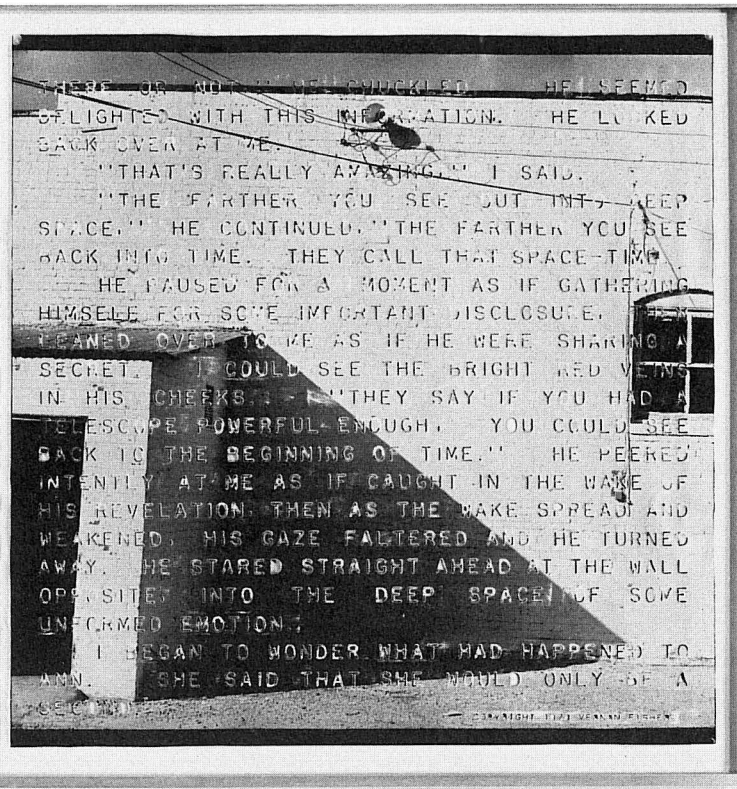 THERE OR NOT." HE CHUCKLED. HE SEEMED
DELIGHTED WITH THIS INFORMATION. HE LOOKED
BACK OVER AT ME.
"THAT'S REALLY AMAZING," I SAID.
"THE FARTHER YOU SEE OUT INTO DEEP
SPACE," HE CONTINUED, "THE FARTHER YOU SEE
BACK INTO TIME. THEY CALL THAT SPACE-TIME."
HE PAUSED FOR A MOMENT AS IF GATHERING
HIMSELF FOR SOME IMPORTANT DISCLOSURE, THEN
LEANED OVER TO ME AS IF HE WERE SHARING A
SECRET. I COULD SEE THE BRIGHT RED VEINS
IN HIS CHEEKS. "THEY SAY IF YOU HAD A
TELESCOPE POWERFUL ENOUGH, YOU COULD SEE
BACK TO THE BEGINNING OF TIME." HE PEERED
INTENTLY AT ME AS IF CAUGHT IN THE WAKE OF
HIS REVELATION, THEN AS THE WAKE SPREAD AND
WEAKENED, HIS GAZE FALTERED AND HE TURNED
AWAY. HE STARED STRAIGHT AHEAD AT THE WALL
OPPOSITE, INTO THE DEEP SPACE OF SOME
UNFORMED EMOTION.
I BEGAN TO WONDER WHAT HAD HAPPENED TO
ANN. SHE SAID THAT SHE WOULD ONLY BE A
SECOND.
COPYRIGHT VERNON FISHER